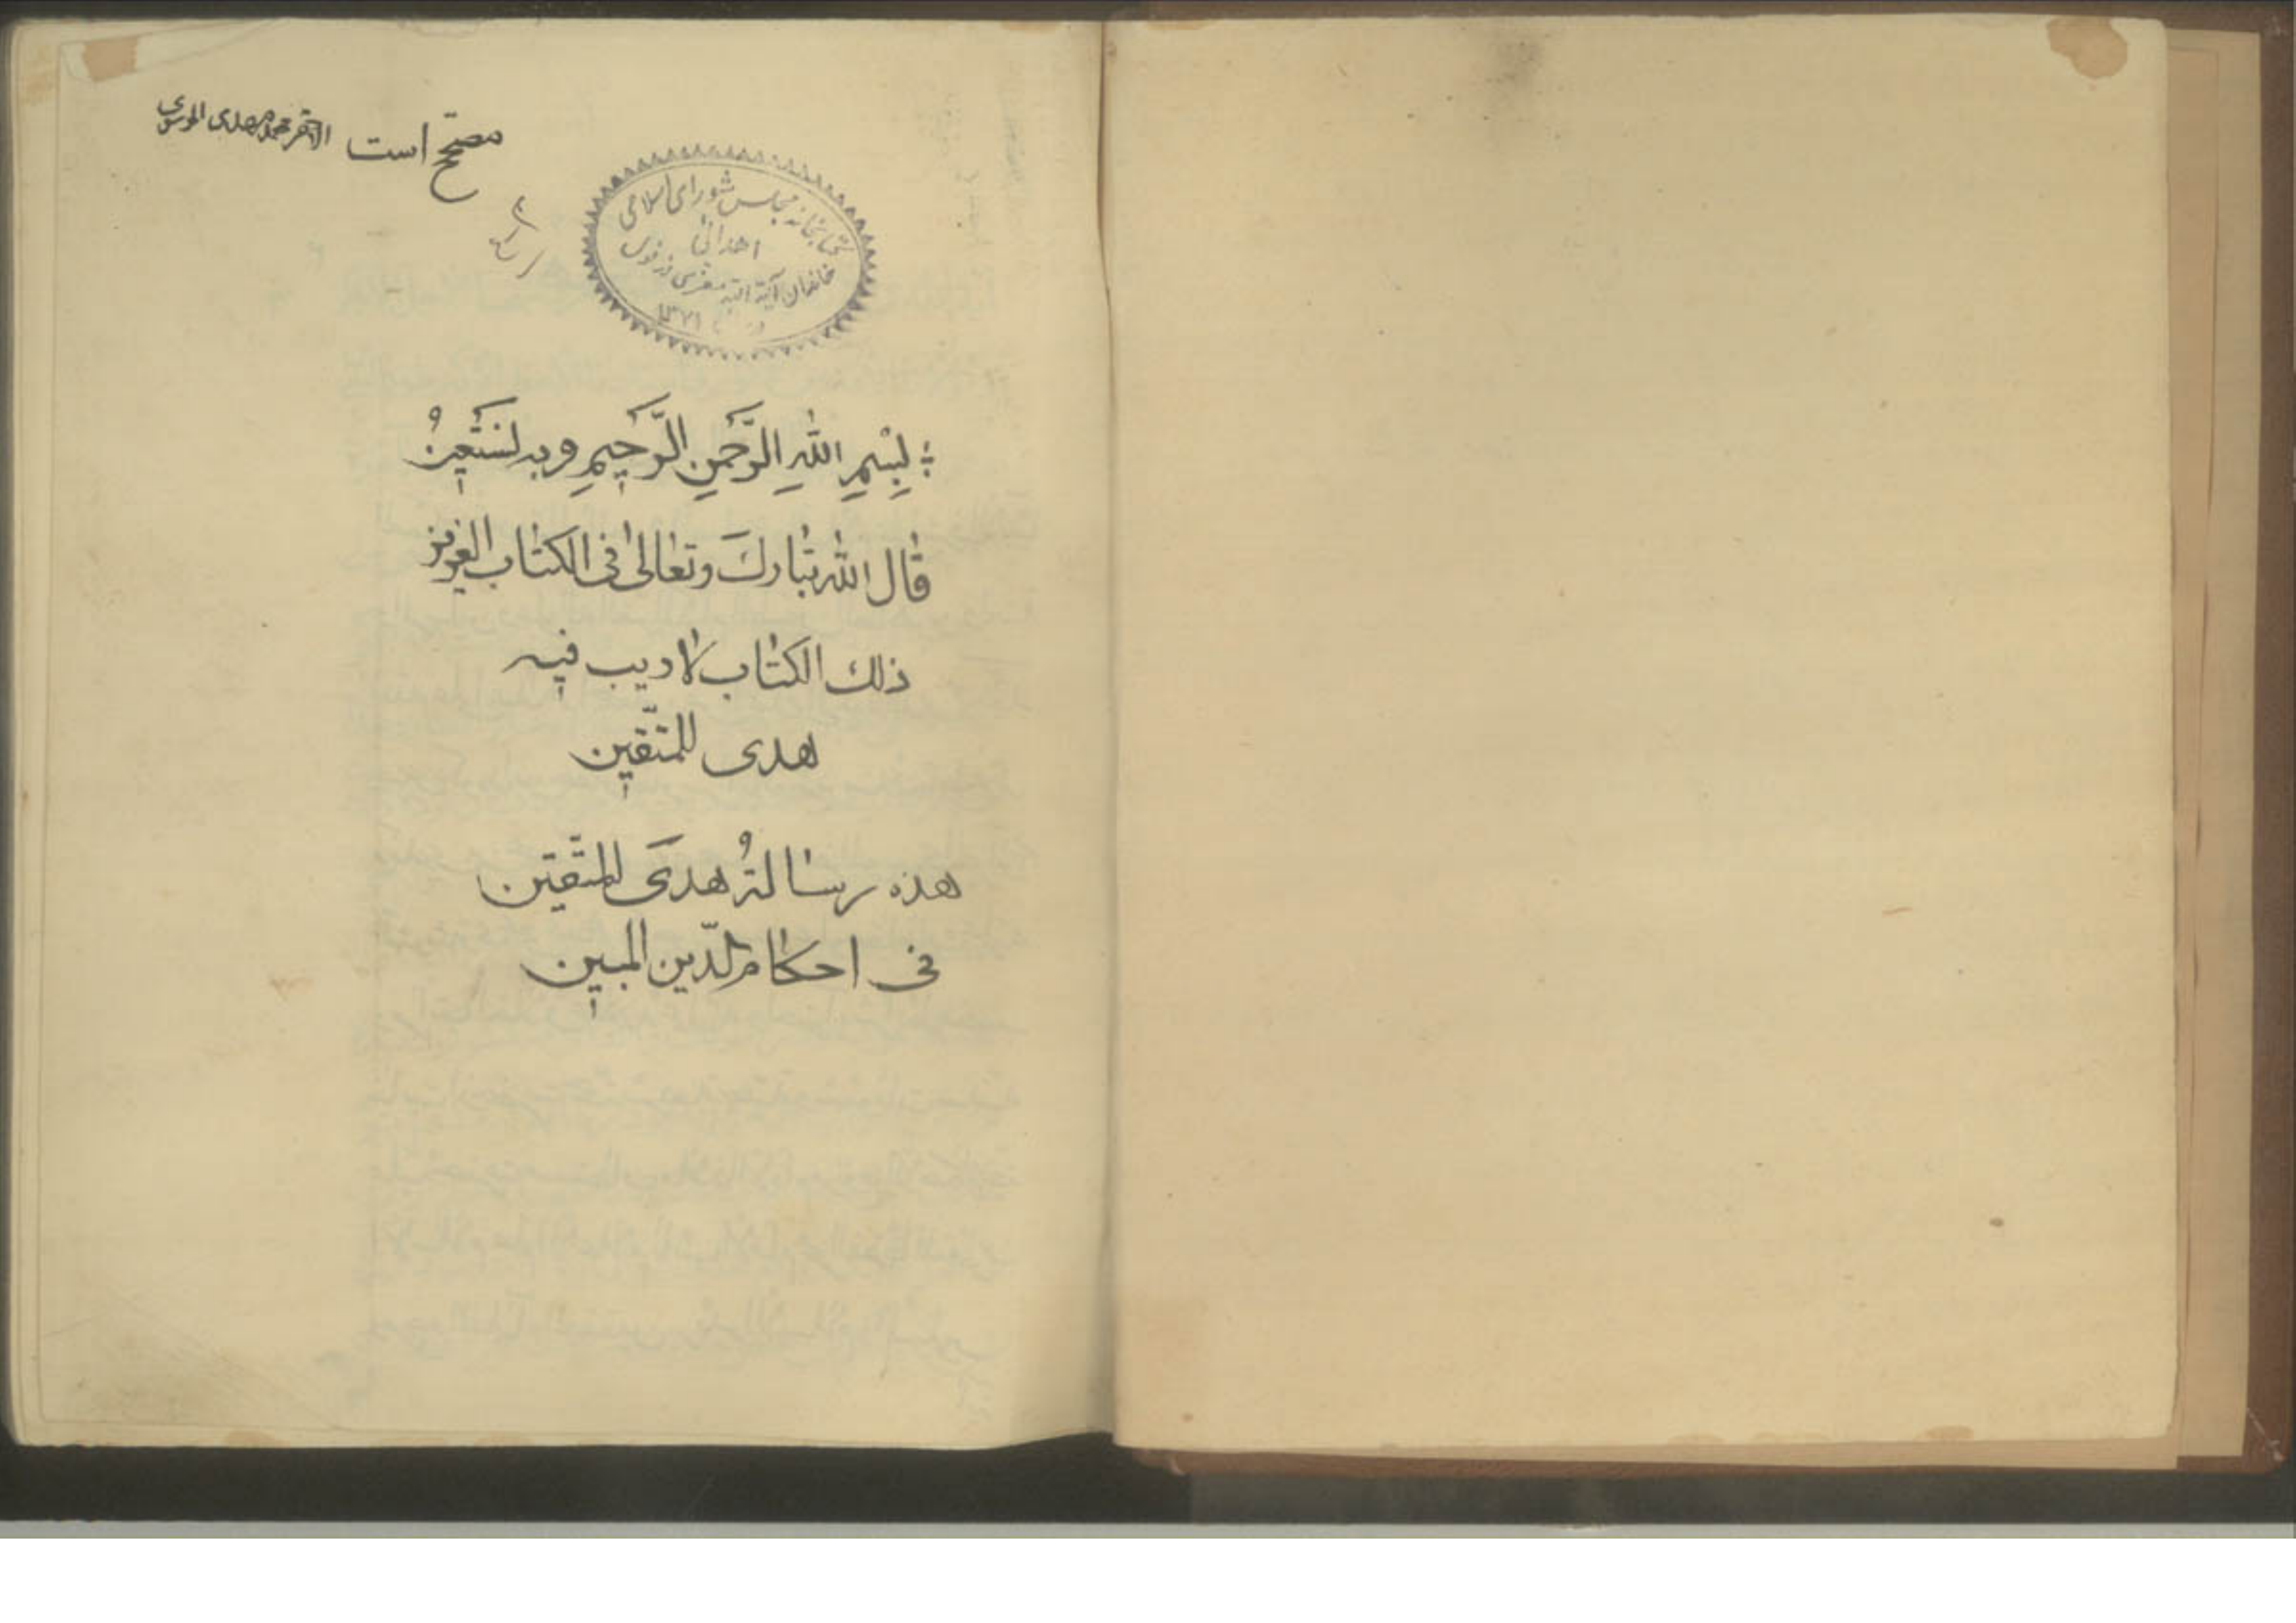 مصحح است الاحقر محمد مهدی الموسوی
کتابخانه مجلس شورای اسلامی
اهدائی
خاندان آیة الله معزی دزفولی
۱۳۷۱
بِسْمِ اللهِ الرَّحْمنِ الرَّحيمِ وبه نَسْتَعينُ
قال الله تبارك وتعالى فی الكتاب العزيز
ذلك الكتاب لا ريب فيه
هدى للمتّقين
هذه رسالةُ هدىَ للمتّقين
فی احكام الدّين المبين